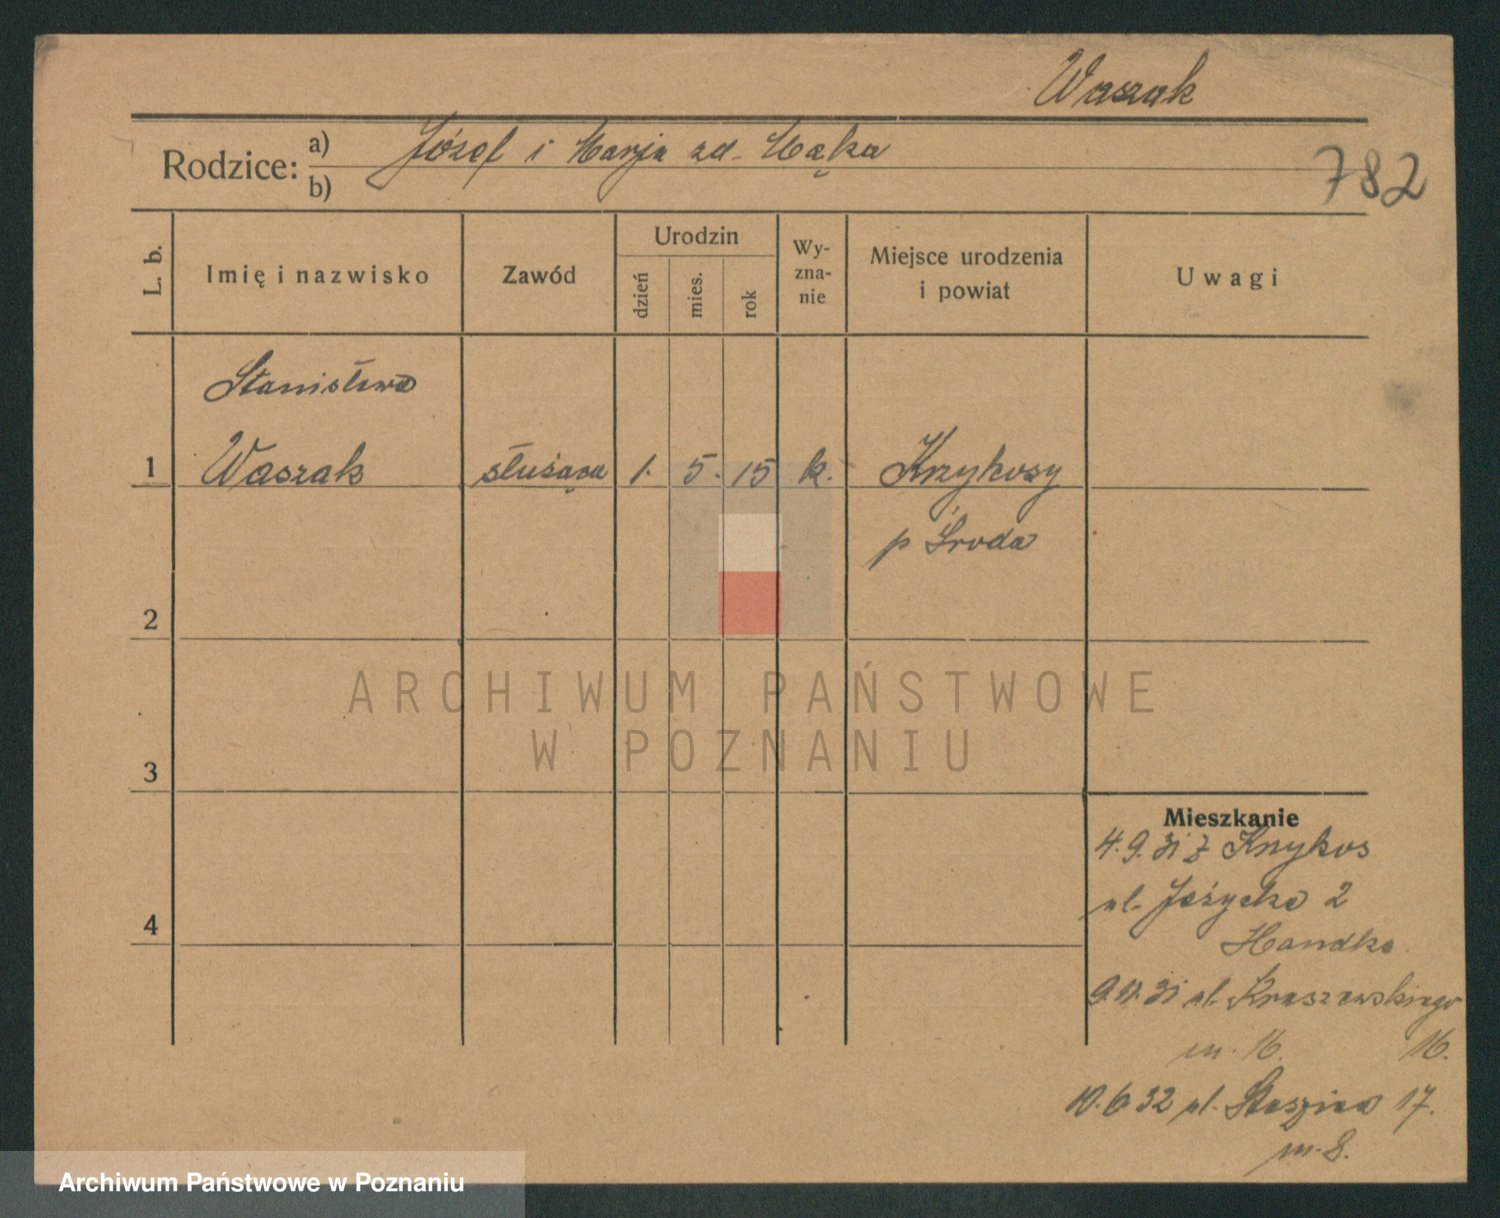 Waszak
Rodzice: a) Józef i Marja zd. Mąka
b)
782
L. b.
Imię i nazwisko
Zawód
Urodzin
dzień
mies.
rok
Wy-
zna-
nie
Miejsce urodzenia
i powiat
Uwagi
Stanisława
1 Waszak służąca 1. 5. 15 k. Krzykosy
p Środa
2
3
4
Mieszkanie
4.9.31 z Krzykos
ul. Jeżycka 2
Handke
9.12.31 ul. Kraszewskiego
m. 16. 16.
10.6 32 ul. Staszica 17.
m. 8.
ARCHIWUM PAŃSTWOWE
W POZNANIU
Archiwum Państwowe w Poznaniu